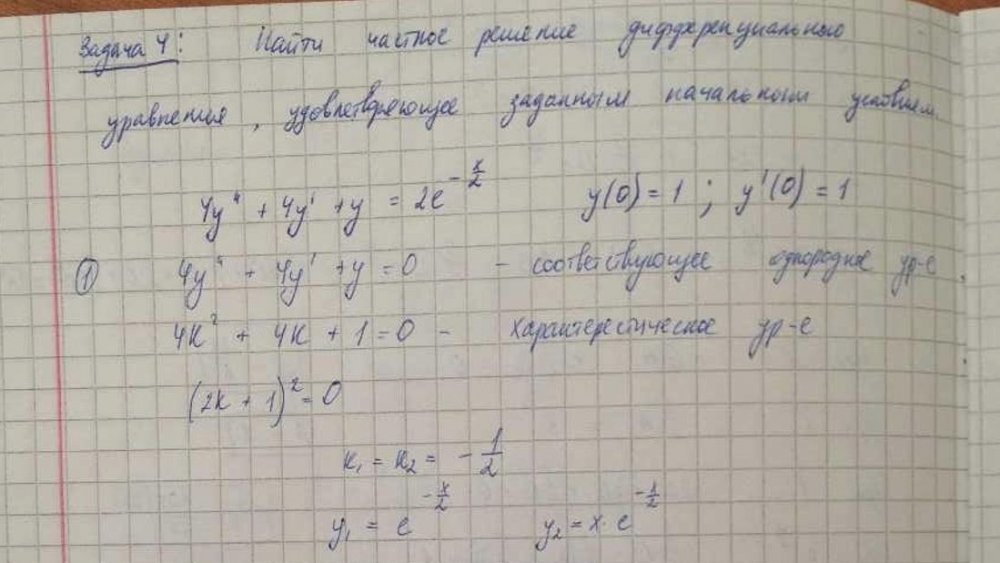 Задача 4: Найти частное решение дифференциального
уравнения, удовлетворяющее заданным начальным условиям.
4y'' + 4y' + y = 2e^{-x/2} y(0) = 1 ; y'(0) = 1
① 4y'' + 4y' + y = 0 - соответствующее однородное ур-е.
4k² + 4k + 1 = 0 - характерестическое ур-е
(2k + 1)² = 0
k₁ = k₂ = -1/2
y₁ = e^{-x/2} y₂ = x·e^{-x/2}